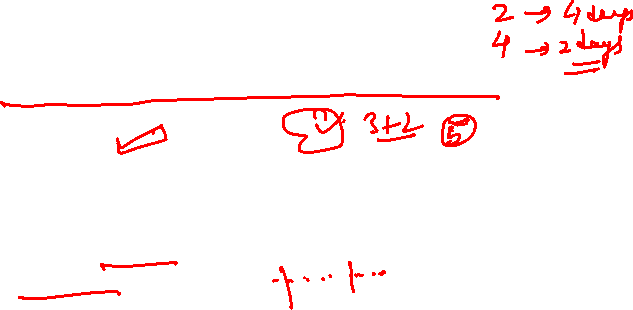 2 → 4 days
4 → 2 days
3+2 5